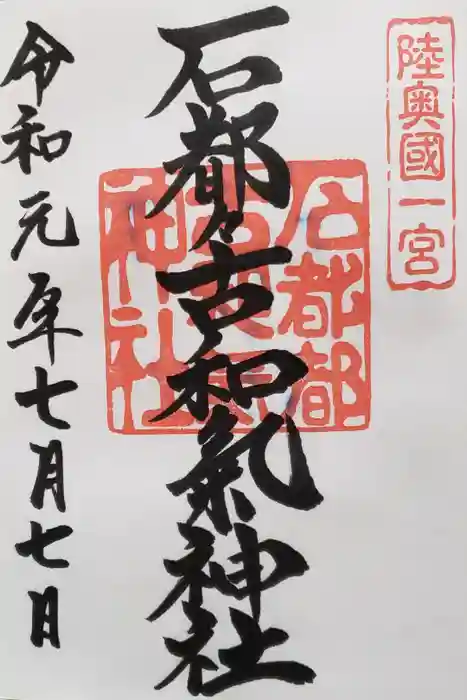 陸奥國一宮
石都々古和氣神社
石都都
神社
令和元年七月七日